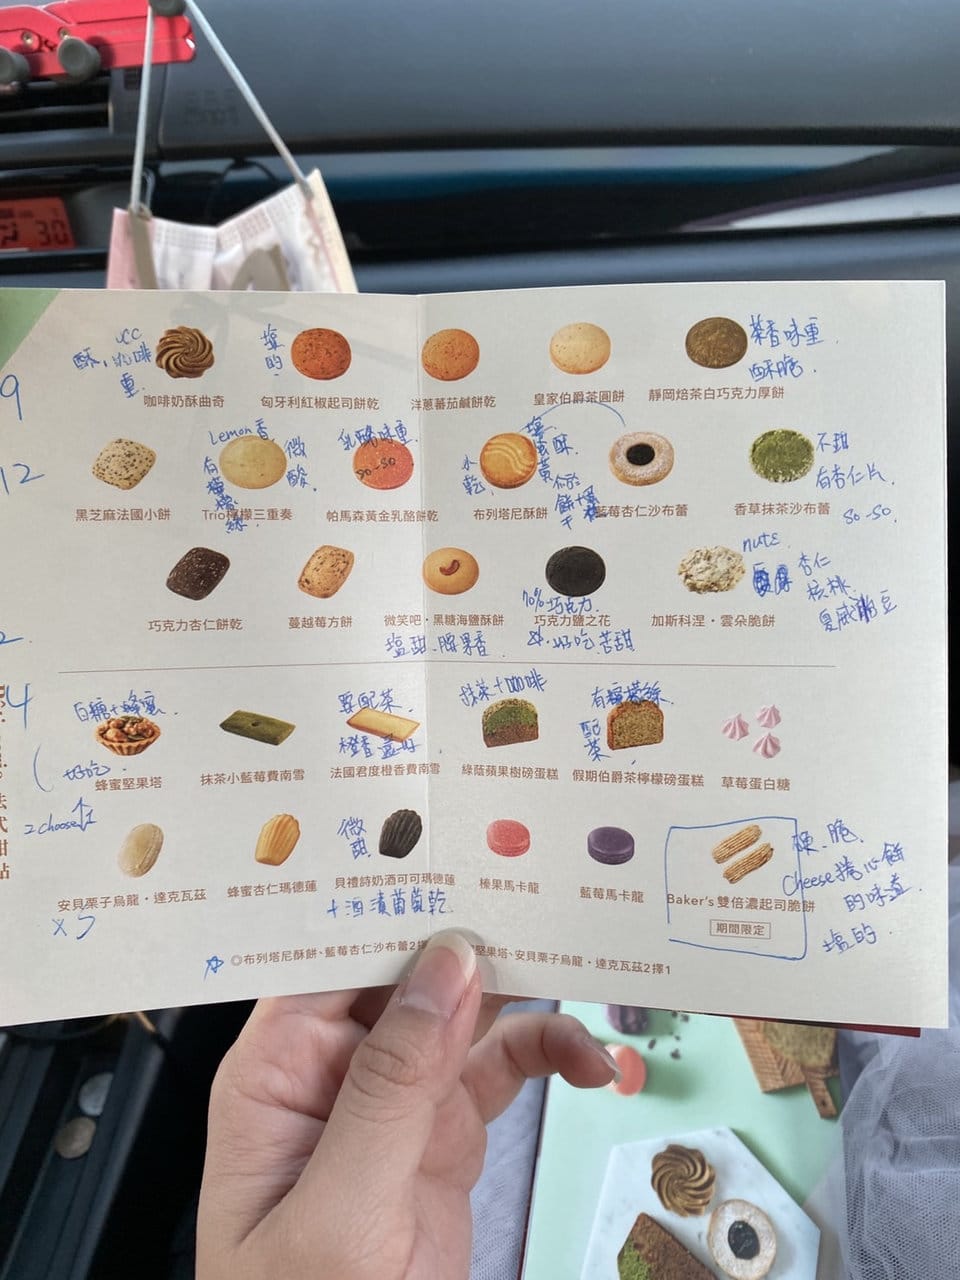 30
9
UCC
酥,咖啡
重.
鹽
的.
茶香味重.
酥脆.
咖啡奶酥曲奇
匈牙利紅椒起司餅乾
洋蔥蕃茄鹹餅乾
皇家伯爵茶圓餅
靜岡焙茶白巧克力厚餅
12
Lemon香
有檸檬絲
微酸.
乳酪味重.
so-so
酥
不甜
有杏仁片.
so-so
黑芝麻法國小餅
Trio檸檬三重奏
帕馬森黃金乳酪餅乾
布列塔尼酥餅
藍莓杏仁沙布蕾
香草抹茶沙布蕾
nuts
杏仁
核桃.
夏威夷豆
70%巧克力.
巧克力杏仁餅乾
蔓越莓方餅
微笑吧・黑糖海鹽酥餅
巧克力鹽之花
加斯科涅・雲朵脆餅
塩甜.腰果香
好吃苦甜
4
白糖+蜂蜜.
好吃.
要配茶.
橙香蛮好
抹茶+咖啡
有檸檬絲
配茶.
蜂蜜堅果塔
抹茶小藍莓費南雪
法國君度橙香費南雪
綠蔭蘋果樹磅蛋糕
假期伯爵茶檸檬磅蛋糕
草莓蛋白糖
2 choose 1
微甜
硬.脆.
cheese捲心餅
的味道
塩的.
安貝栗子烏龍・達克瓦茲
蜂蜜杏仁瑪德蓮
貝禮詩奶酒可可瑪德蓮
榛果馬卡龍
藍莓馬卡龍
Baker's 雙倍濃起司脆餅
期間限定
+酒漬葡萄乾
◎布列塔尼酥餅、藍莓杏仁沙布蕾2
堅果塔、安貝栗子烏龍・達克瓦茲2擇1